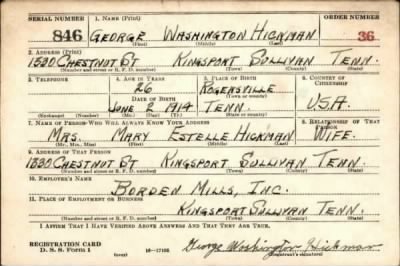 SERIAL NUMBER 1. NAME (Print) ORDER NUMBER
846 GEORGE WASHINGTON HICKMAN 36
(First) (Middle) (Last)
2. ADDRESS (Print)
1330 CHESTNUT ST KINGSPORT SULLIVAN TENN.
(Number and street or R. F. D. number) (Town) (County) (State)
3. TELEPHONE 4. AGE IN YEARS 5. PLACE OF BIRTH 6. COUNTRY OF CITIZENSHIP
26 ROGERSVILLE
DATE OF BIRTH (Town or county)
JUNE 2 1914 TENN. U.S.A.
(Exchange) (Number) (Mo.) (Day) (Yr.) (State or country)
7. NAME OF PERSON WHO WILL ALWAYS KNOW YOUR ADDRESS 8. RELATIONSHIP OF THAT PERSON
MRS. MARY ESTELLE HICKMAN WIFE.
(Mr., Mrs., Miss) (First) (Middle) (Last)
9. ADDRESS OF THAT PERSON
1330 CHESTNUT ST KINGSPORT SULLIVAN TENN.
(Number and street or R. F. D. number) (Town) (County) (State)
10. EMPLOYER'S NAME
BORDEN MILLS, INC.
11. PLACE OF EMPLOYMENT OR BUSINESS
KINGSPORT SULLIVAN TENN.
(Number and street or R. F. D. number) (Town) (County) (State)
I AFFIRM THAT I HAVE VERIFIED ABOVE ANSWERS AND THAT THEY ARE TRUE.
REGISTRATION CARD
D. S. S. Form 1 (over) 16-17105 George Washington Hickman
(Registrant's signature)